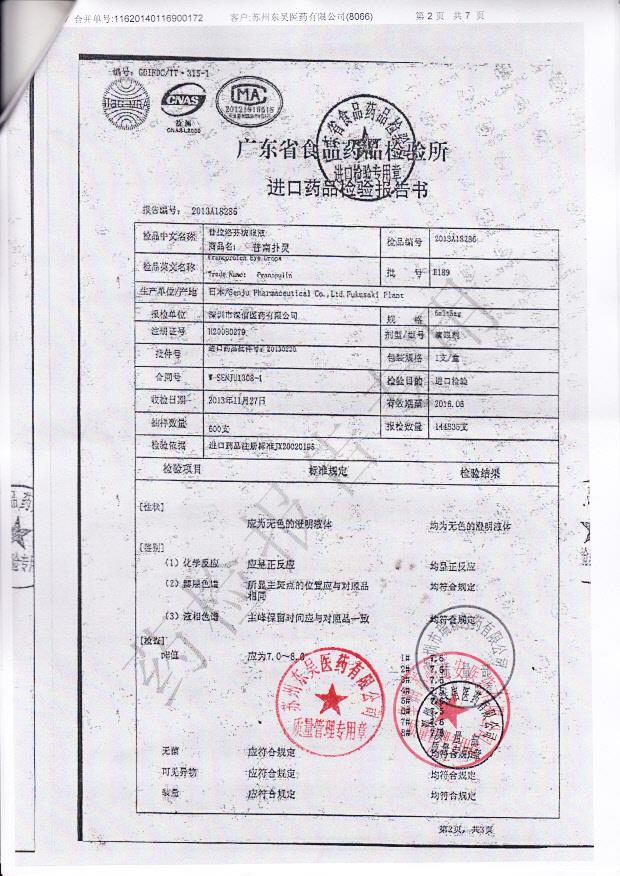 合并单号:11620140116900172 客户:苏州东吴医药有限公司(8066) 第 2 页 共 7 页
编号: GDIFDC/TT·315-1
CNAS
检测
CNAS L2080
MA
广东省食品药品检验所
进口药品检验报告书
报告编号: 2013A18286
检品中文名称 普拉洛芬滴眼液
商品名: 普南扑灵
检品编号 2013A18286
检品英文名称 Pranoprofen Eye Drops
Trade Name: Pranopulin
批 号 E189
生产单位/产地 日本/Senju Pharmaceutical Co.,Ltd.Fukusaki Plant
报检单位 深圳市深信医药有限公司 规 格 5ml:5mg
注册证号 H20080279 剂型/型号 滴眼剂
批件号 包装规格 1支/盒
合同号 W-SENJU1308-4 检验目的 进口检验
收检日期 2013年11月27日 有效期至 2016.06
抽样数量 600支 报检数量 144835支
检验依据 进口药品注册标准JX20020195
检验项目 标准规定 检验结果
[性状]
应为无色的澄明液体 均为无色的澄明液体
[鉴别]
(1) 化学反应 应呈正反应 均显正反应
(2) 薄层色谱 所显主斑点的位置应与对照品相同 均符合规定
(3) 液相色谱 主峰保留时间应与对照品一致 均符合规定
[检查]
pH值 应为7.0~8.0
1# 7.6
2# 7.6
3# 7.6
4#
5#
6#
7#
8#
无菌 应符合规定 均符合规定
可见异物 应符合规定 均符合规定
装量 应符合规定 均符合规定
第2页, 共3页
广东省食品药品检验所
进口检验专用章
苏州东吴医药有限公司
质量管理专用章
药检报告专用